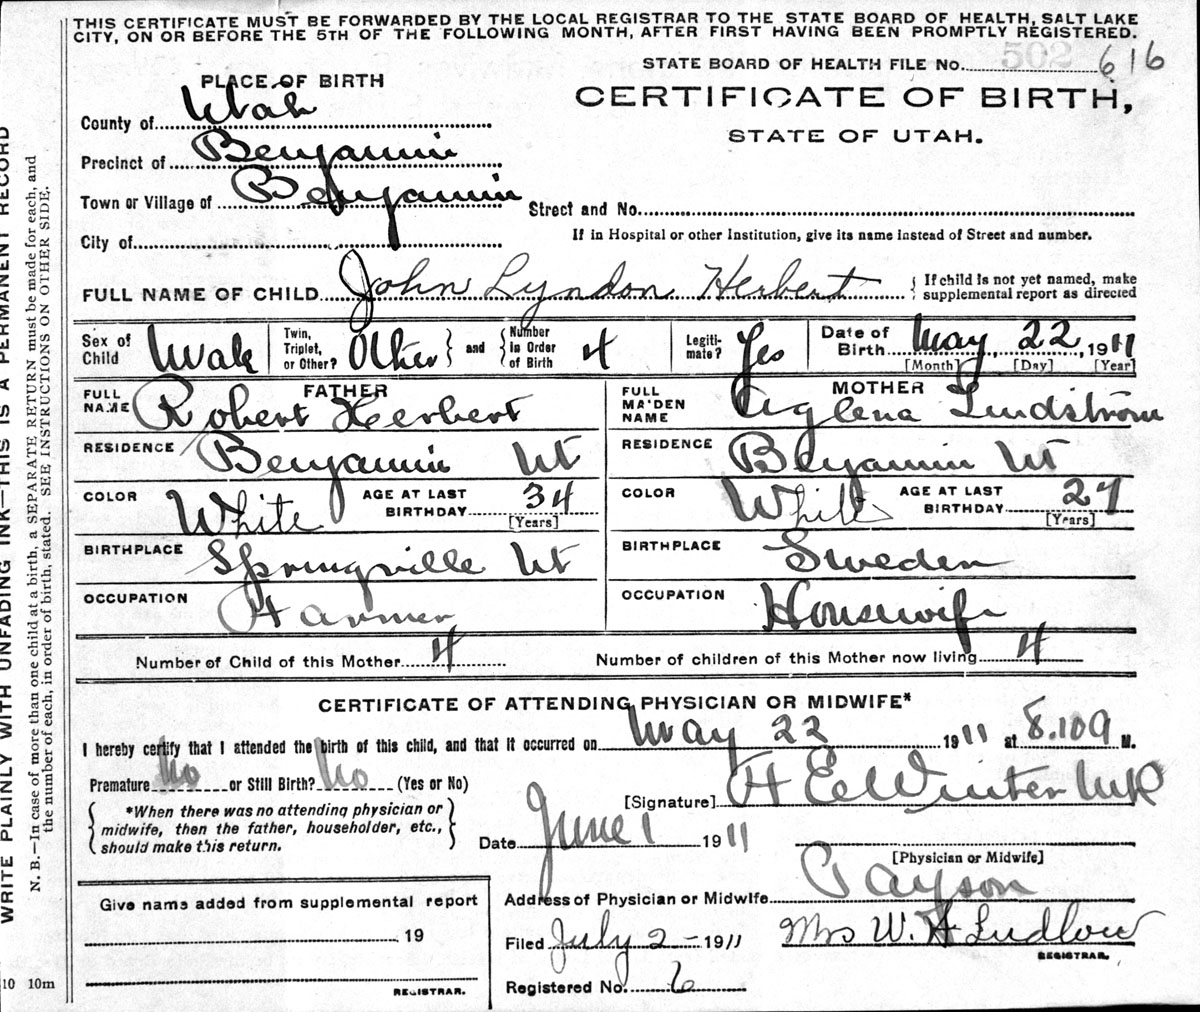 THIS CERTIFICATE MUST BE FORWARDED BY THE LOCAL REGISTRAR TO THE STATE BOARD OF HEALTH, SALT LAKE
CITY, ON OR BEFORE THE 5TH OF THE FOLLOWING MONTH, AFTER FIRST HAVING BEEN PROMPTLY REGISTERED.
502
STATE BOARD OF HEALTH FILE NO. 616
PLACE OF BIRTH
CERTIFICATE OF BIRTH,
STATE OF UTAH.
County of Utah
Precinct of Benjamin
Town or Village of Benjamin
Street and No.
City of
If in Hospital or other Institution, give its name instead of Street and number.
FULL NAME OF CHILD John Lyndon Herbert { If child is not yet named, make
supplemental report as directed
Sex of
Child Male
Twin,
Triplet,
or Other? Other } and { Number
in Order
of Birth 4
Legiti-
mate? Yes
Date of
Birth May 22, 1911
[Month] [Day] [Year]
FATHER
FULL
NAME Robert Herbert
RESIDENCE Benjamin Ut
COLOR White AGE AT LAST
BIRTHDAY 34
[Years]
BIRTHPLACE Springville Ut
OCCUPATION Farmer
MOTHER
FULL
MAIDEN
NAME Lindström
RESIDENCE Benjamin Ut
COLOR White AGE AT LAST
BIRTHDAY 27
[Years]
BIRTHPLACE Sweden
OCCUPATION Housewife
Number of Child of this Mother 4 Number of children of this Mother now living 4
CERTIFICATE OF ATTENDING PHYSICIAN OR MIDWIFE*
I hereby certify that I attended the birth of this child, and that it occurred on May 22 1911 at M.
Premature No or Still Birth? No (Yes or No)
[Signature] H E Winter MD
{ *When there was no attending physician or
midwife, then the father, householder, etc.,
should make this return. }
Date June 1 1911
[Physician or Midwife]
Address of Physician or Midwife Payson
Give name added from supplemental report
19
REGISTRAR.
Filed July 2- 1911 Mrs W. H Ludlow
REGISTRAR.
Registered No. 6
10 10m
WRITE PLAINLY WITH UNFADING INK—THIS IS A PERMANENT RECORD
N. B.—In case of more than one child at a birth, a SEPARATE RETURN must be made for each, and
the number of each, in order of birth, stated. SEE INSTRUCTIONS ON OTHER SIDE.